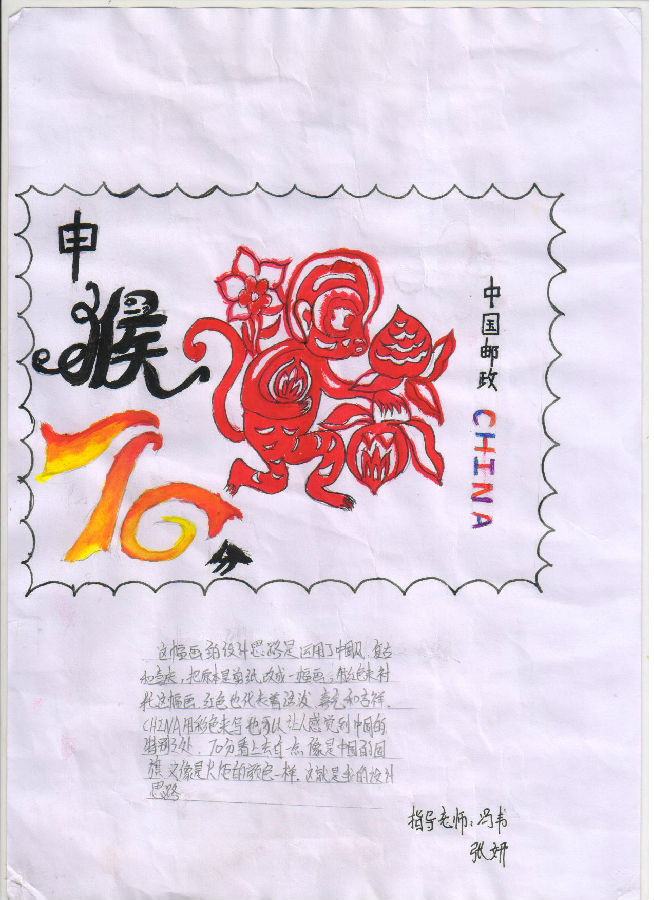 申
猴
70分
中国邮政
CHINA
这幅画的设计思路是运用了中国风,复古
和喜庆,把原本是剪纸改成一幅画,用红色来衬
托这幅画,红色也代表着活泼、喜气和吉祥.
CHINA用彩色来写也可以让人感觉到中国的
特别之处.70分看上去
像是中国的国
旗又像是火炬的颜色一样.这就是我的设计
思路
指导老师:冯韦
张妍